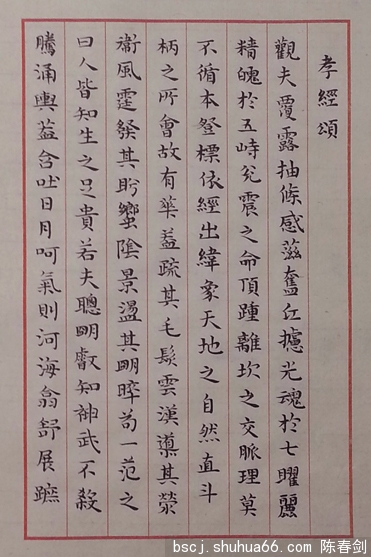 孝經頌
觀夫覆露抽條感滋奮紅攄光魂於七曜麗
精魄於五峙兊震之命頂踵離坎之交脈理莫
不循本登標依經出緯象天地之自然直斗
柄之所會故有華葢疏其毛髮雲漢導其滎
衛風霆發其盻蠁陰景盪其明晬苟一范之
曰人皆知生之足貴若夫聰明叡知神武不殺
騰涌輿葢含吐日月呵氣則河海翕舒展蹠
bscj.shuhua66.com 陈春剑